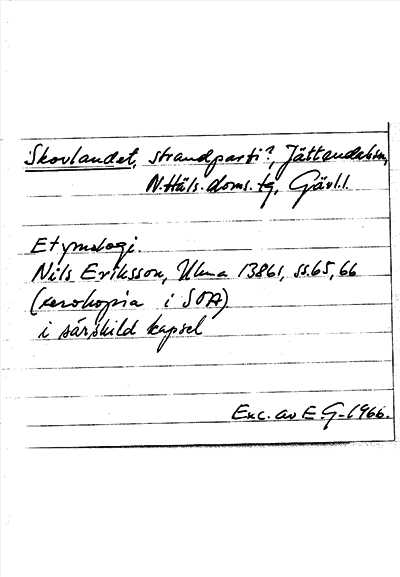 Skovlandet, strandparti?, Jättendal sn,
N. Häls. doms. tg, Gävl. l.
Etymologi.
Nils Eriksson, Ulma 13861, ss. 65, 66
(xerokopia i SOA)
i särskild kapsel
Exc. av E G-1966.